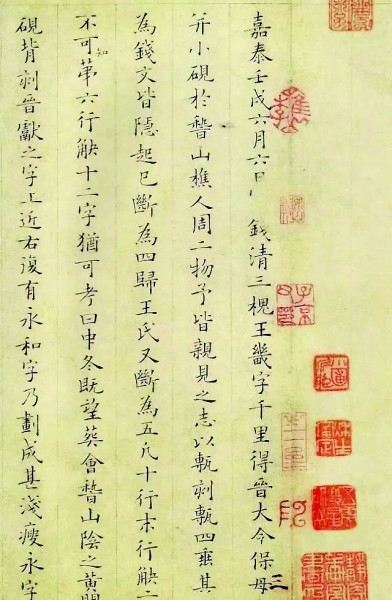 嘉泰壬戌六月六日錢清三槐王畿字千里得晉大令保母
并小硯於稽山樵人周二物予皆親見之志以甎刻甎四垂其
為錢文皆隱起已斷為四歸王氏又斷為五凡十行末行缺二
不可知第六行缺十二字猶可考曰中冬既望葬會稽山陰之黃
硯背刻晉獻之字上近右復有永和字乃劃成甚淺瘦永字